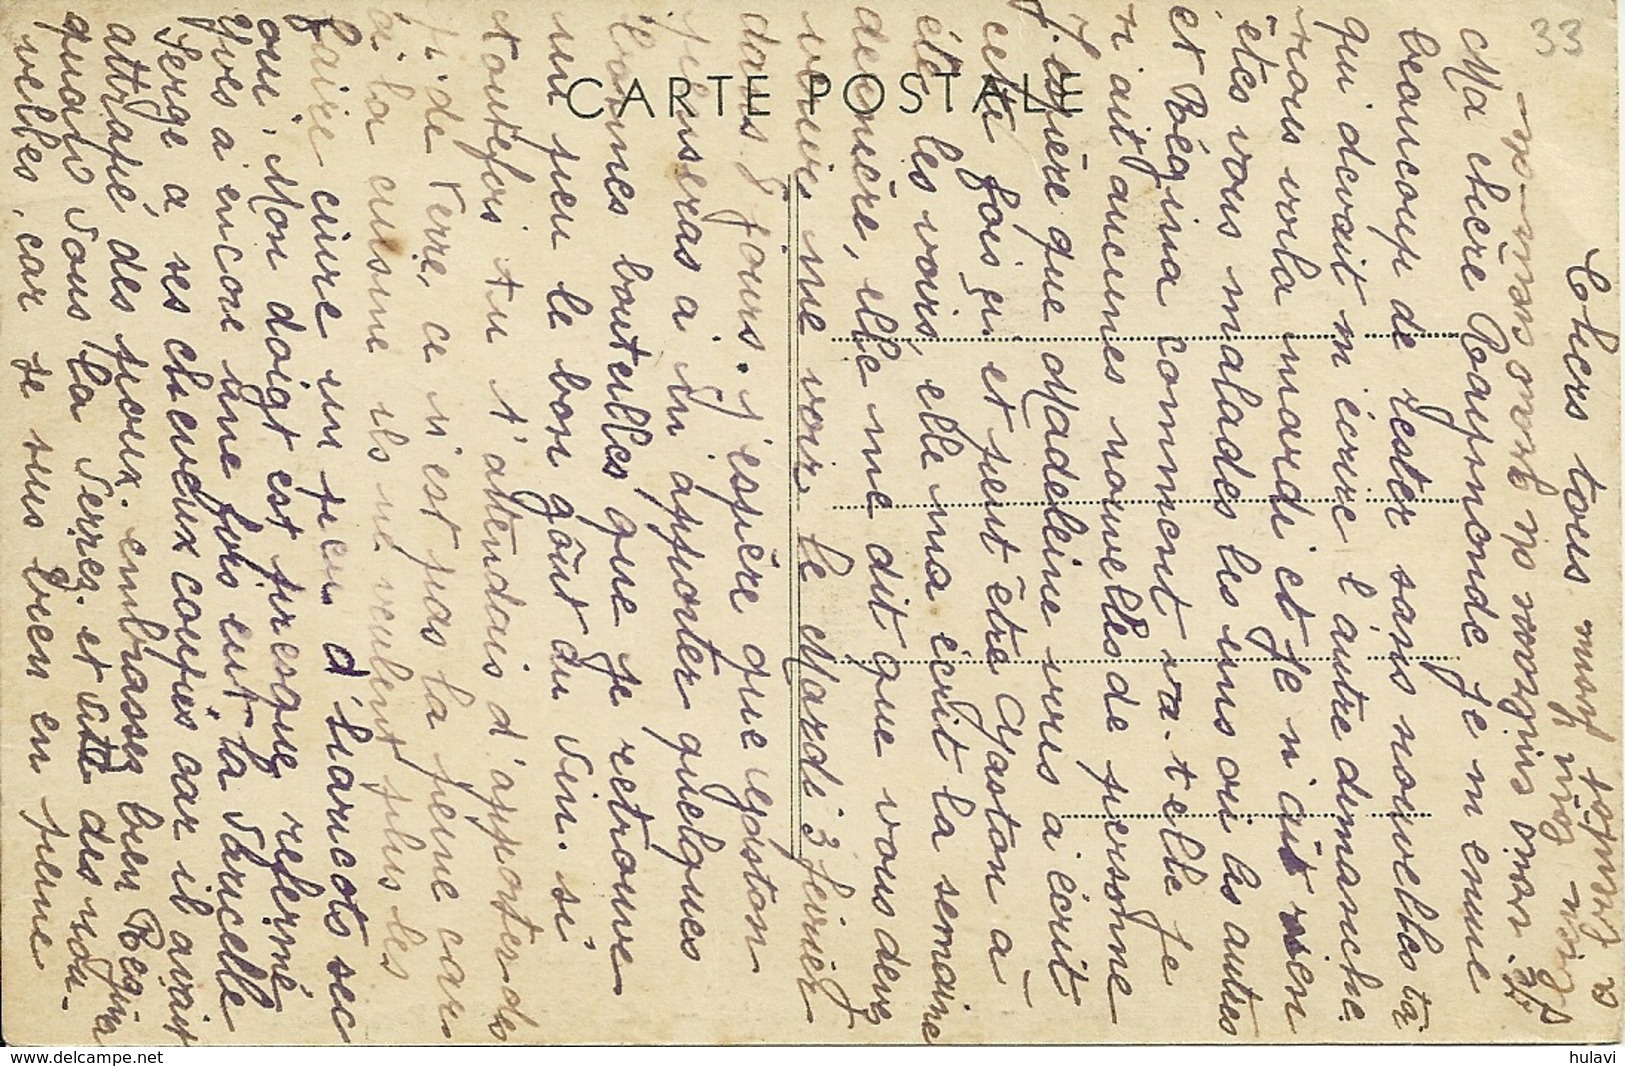 33
CARTE POSTALE
Chers tous
Ma chère Raymonde je m'ennuie
beaucoup de rester sans nouvelles ta
qui devait m'écrire l'autre dimanche.
nous voila mardi et je n'aût rien
êtes vous malades les uns ou les autres
et Régina comment va-t-elle je
n'ait aucunes nouvelles de personne
J'espère que Madeleine vous a écrit
cette fois ci et peut être Gaston à
été les voirs, elle ma écrit la semaine
dernière, elle me dit que vous deves
venir me voir le Mardi 3 fevrier
dans 8 jours. j'espère que
penseras a m'apporter quelques
bonnes bouteilles que je retrouve
un peu le bon goût du vin. si
toutefois tu t'atendais d'apporter des
p. de terre, ce n'est pas la peine car
à la cuisine ils ne veulent plus les
faire cuire un peu d'haricots sec
oui. Mon doigt est presque refermé
Yves a encore une fois eut la
Serge a ses cheveux coupés car il avait
attrapé des poux. embrasses bien Regina
quand vous la Serrez. et des nou-
velles, car je suis bien en peine
a bientôt
hulavi